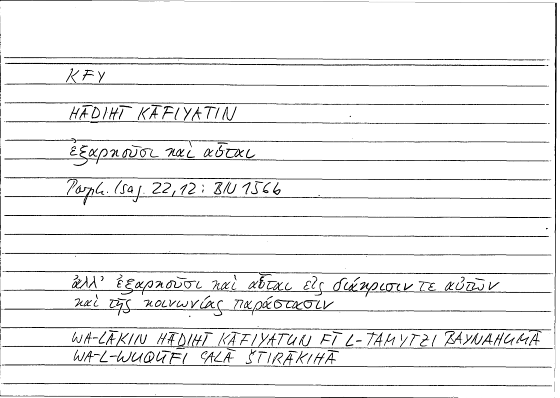 KFY
HĀḎIHĪ KĀFIYATIN
ἐξαρκοῦσι καὶ αὗται
Porph. Isag. 22,12: BN 156b
ἀλλ' ἐξαρκοῦσι καὶ αὗται εἰς διάκρισιν τε αὐτῶν
καὶ τῆς κοινωνίας παράστασιν
WA-LĀKIN HĀḎIHĪ KĀFIYATUN FĪ L-TAMYĪZI BAYNAHUMĀ
WA-L-WUQŪFI ʿALĀ ŠTIRĀKIHĀ